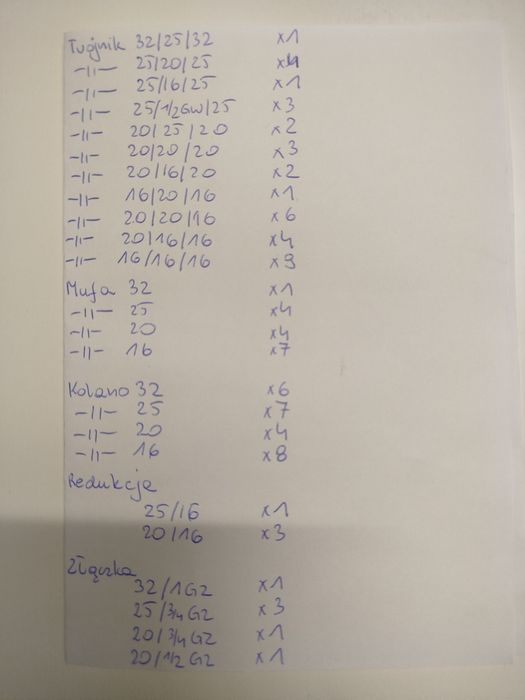 Trójnik 32/25/32 x1
-||- 25/20/25 x4
-||- 25/16/25 x1
-||- 25/1/2GW/25 x3
-||- 20/25/20 x2
-||- 20/20/20 x3
-||- 20/16/20 x2
-||- 16/20/16 x1
-||- 20/20/16 x6
-||- 20/16/16 x4
-||- 16/16/16 x9
Mufa 32 x1
-||- 25 x4
-||- 20 x4
-||- 16 x7
Kolano 32 x6
-||- 25 x7
-||- 20 x4
-||- 16 x8
Redukcje
25/16 x1
20/16 x3
Złączka
32/1GZ x1
25/3/4GZ x3
20/3/4GZ x1
20/1/2GZ x1